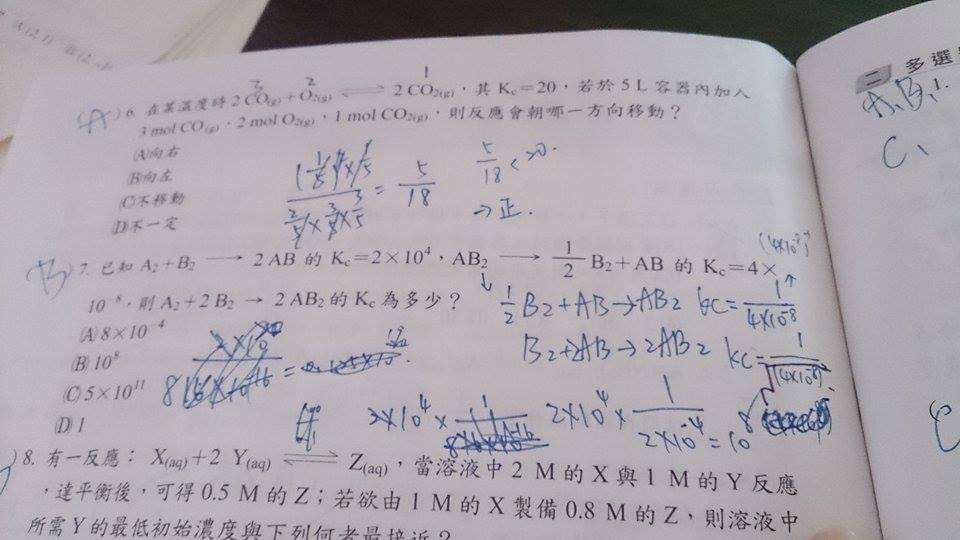 多選
1.
A,B,
C,
(A) 6. 在某溫度時 2 CO(g) + O2(g) ⇌ 2 CO2(g),其 Kc = 20,若於 5 L 容器內加入
3 2 1
3 mol CO(g)、2 mol O2(g)、1 mol CO2(g),則反應會朝哪一方向移動?
(A)向右
(B)向左
(C)不移動
(D)不一定
= 5/18
5/18 < 20.
→ 正.
(B) 7. 已知 A2 + B2 → 2 AB 的 Kc = 2 × 10⁴,AB2 → 1/2 B2 + AB 的 Kc = 4 ×
10⁻⁸,則 A2 + 2 B2 → 2 AB2 的 Kc 為多少?
↓ 1/2 B2 + AB → AB2 Kc = 1/(4×10⁻⁸)
B2 + 2AB → 2AB2 Kc =
(A) 8 × 10⁻⁴
(B) 10⁸
(C) 5 × 10¹¹
(D) 1
2×10⁴ ×
2×10⁴ × 1/(2×10⁻⁴) = 10⁸
) 8. 有一反應: X(aq) + 2 Y(aq) ⇌ Z(aq),當溶液中 2 M 的 X 與 1 M 的 Y 反應
,達平衡後,可得 0.5 M 的 Z;若欲由 1 M 的 X 製備 0.8 M 的 Z,則溶液中
所需 Y 的最低初始濃度與下列何者最接近?